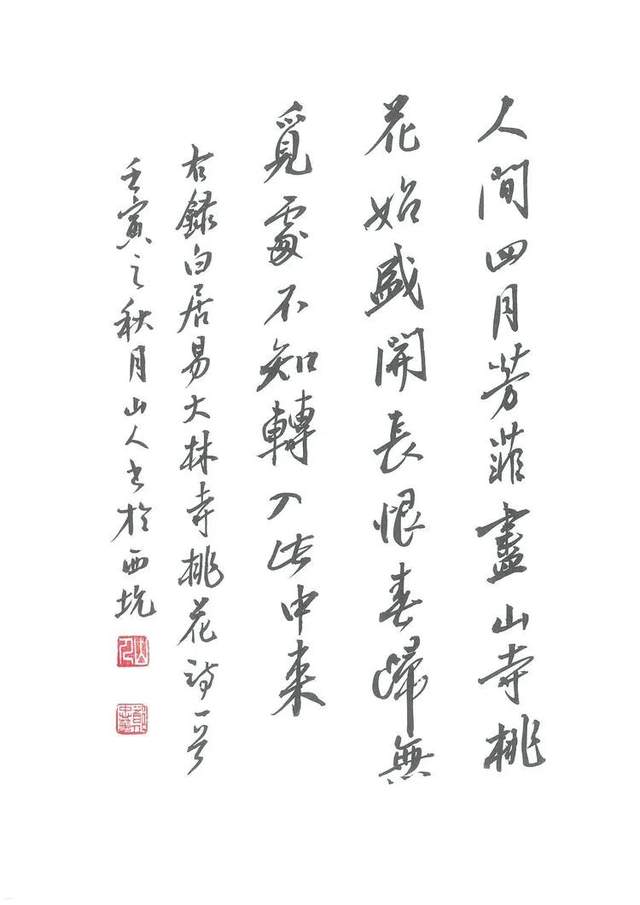 人間四月芳菲盡山寺桃
花始盛開長恨春歸無
覓處不知轉入此中來
右録白居易大林寺桃花詩一首
壬寅之秋月山人書於西坑